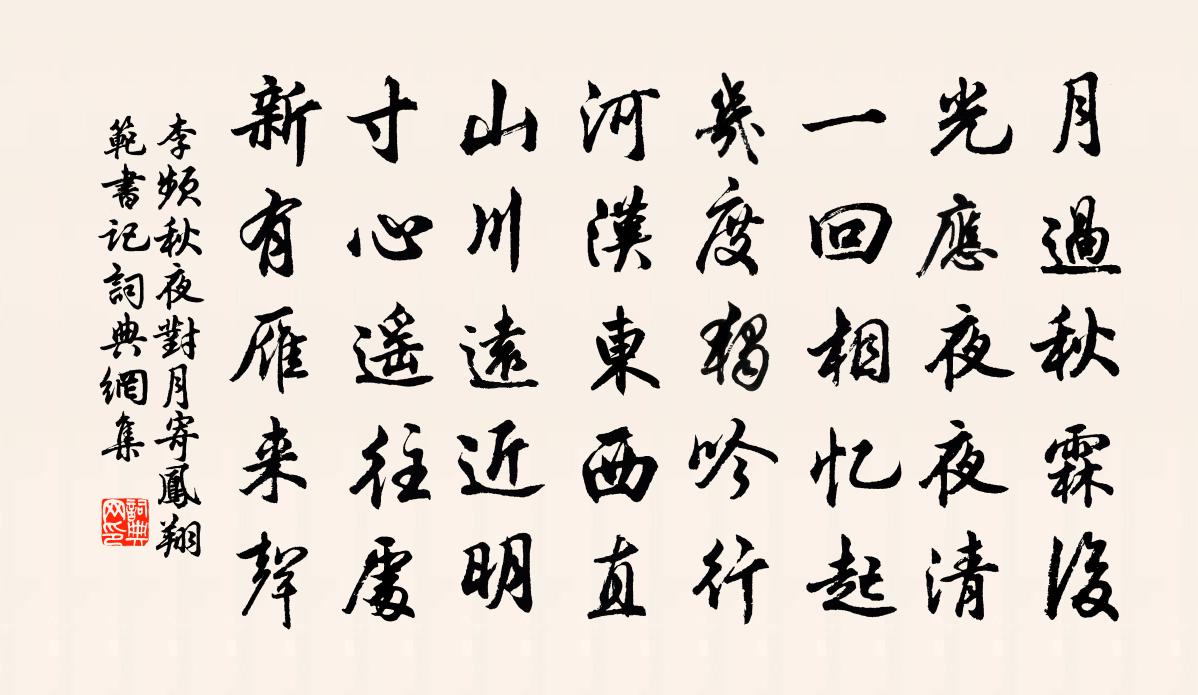 月過秋霖後
光應夜夜清
一回相忆起
幾度獨吟行
河漢東西直
山川遠近明
寸心遥往處
新有雁来聲
李頻秋夜對月寄鳳翔
範書記詞典網集
詞典
网印